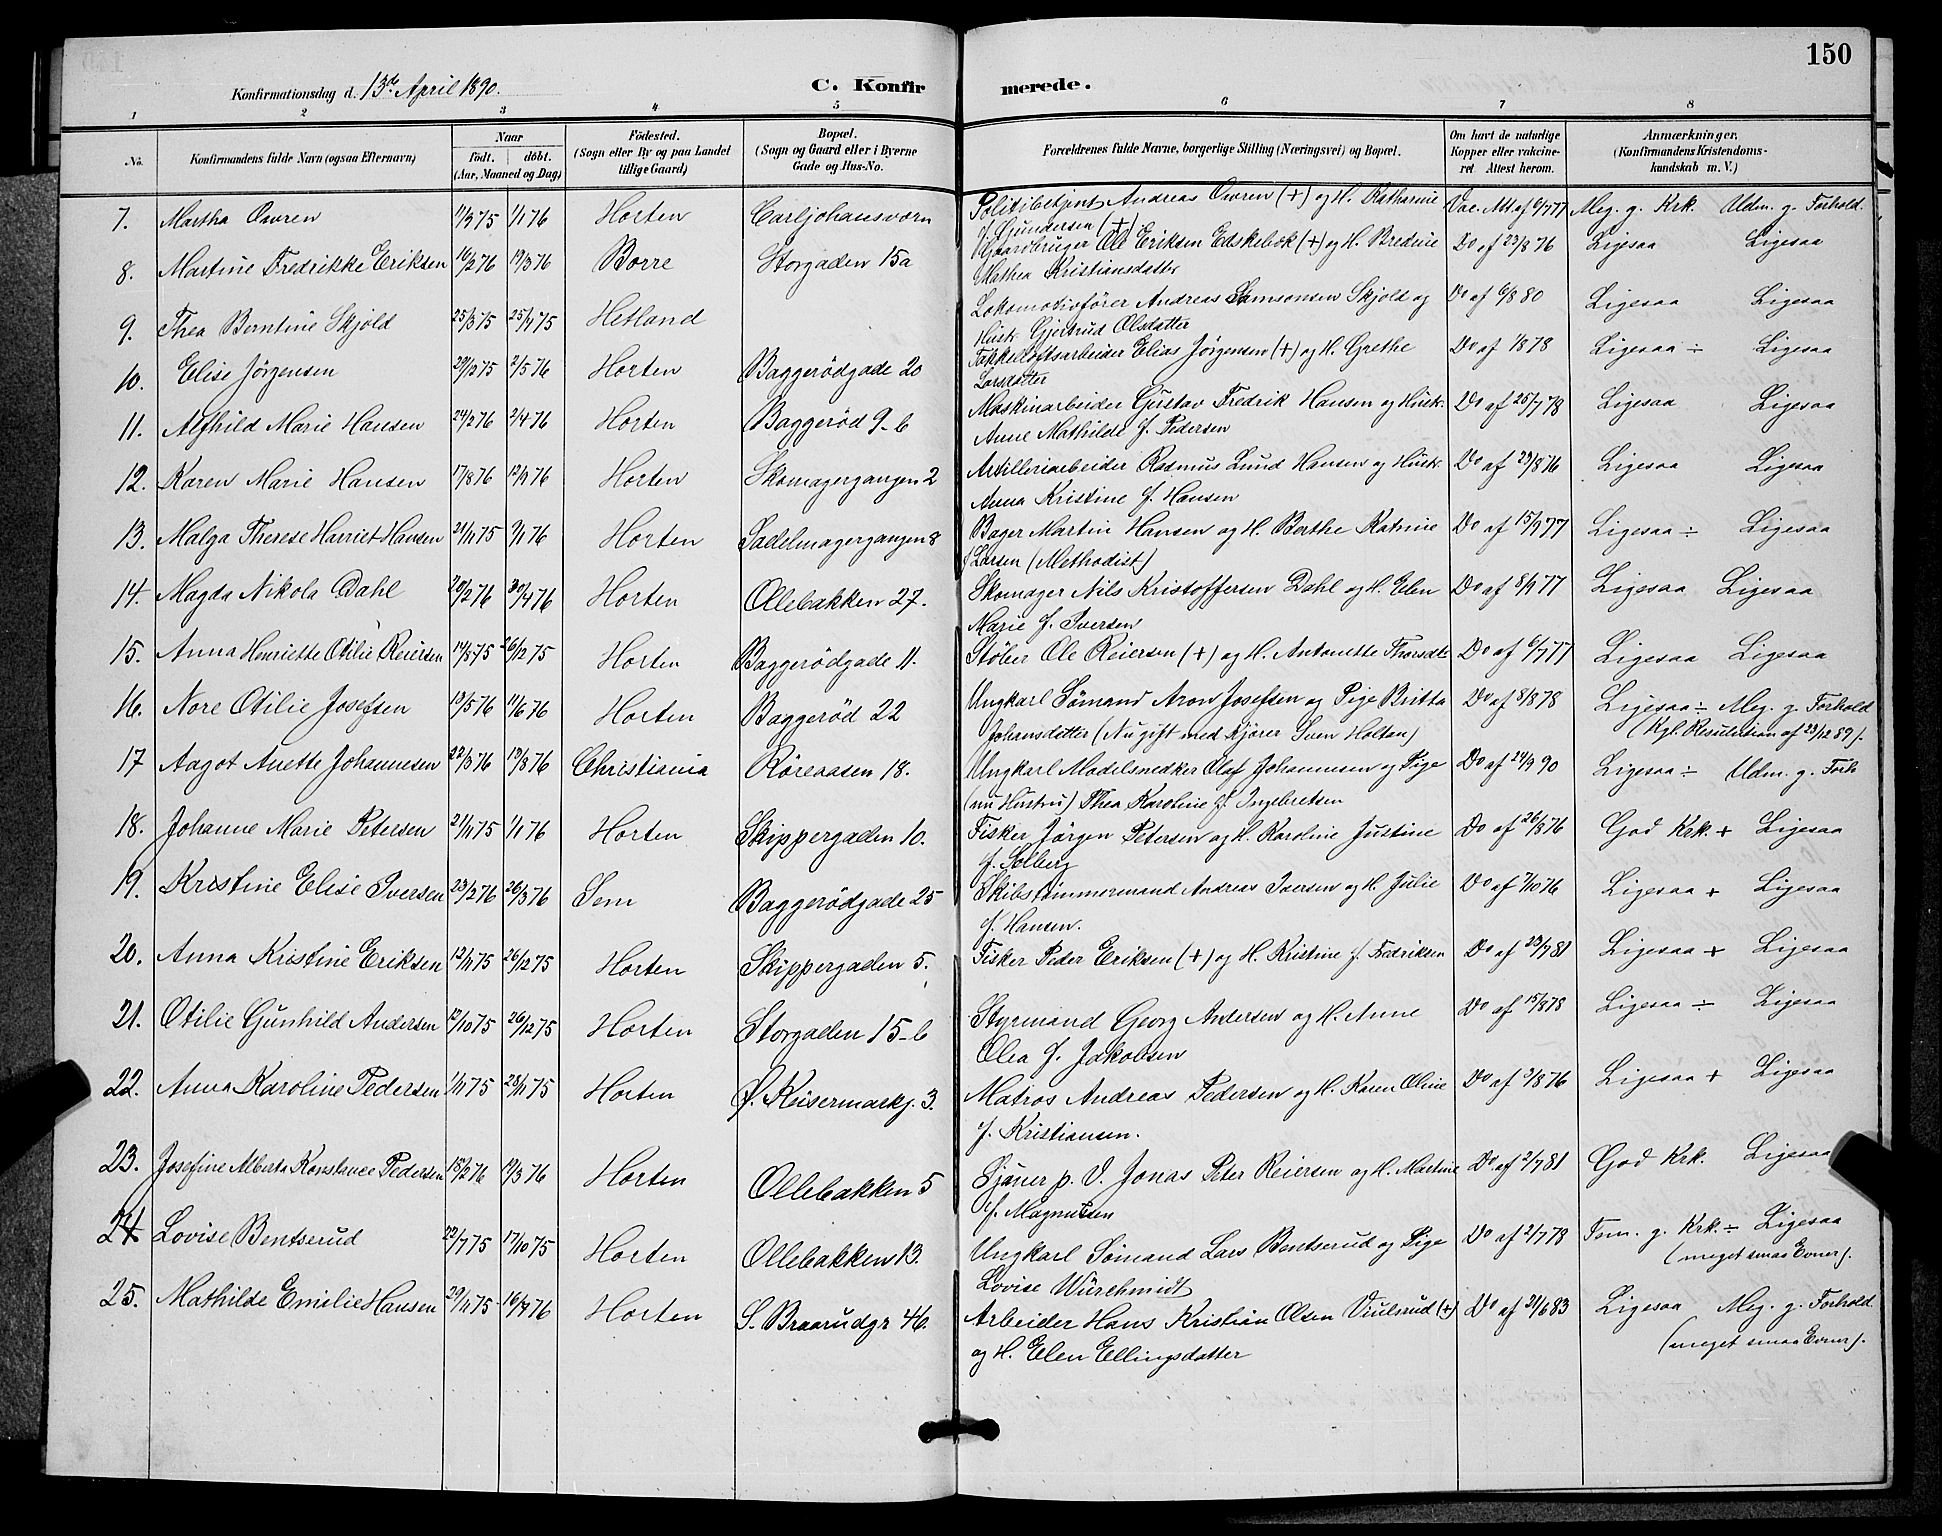 150
Konfirmationsdag d. 13de April 1890.
C. Konfirmerede.
1 2 3 4 5 6 7 8
No.
Konfirmandens fulde Navn (ogsaa Efternavn)
Naar
födt. döbt.
(Aar, Maaned og Dag)
Födested.
(Sogn eller By og paa Landet
tillige Gaard)
Bopæl.
(Sogn og Gaard eller i Byerne
Gade og Hus-No.
Forældrenes fulde Navne, borgerlige Stilling (Næringsvei) og Bopæl.
Om havt de naturlige
Kopper eller vakcine-
ret Attest herom.
Anmærkninger.
(Konfirmandens Kristendoms-
kundskab m. V.)
7. Martha Owren 75 1/1 76 Horten Carljohansværn Politibetjent Andreas Owren (+) og H. Katharine Vac. Att af 6/7 77 Meg. g. Krk. Udm. g. Forhold.
f. Gundersen (+)
8. Martine Fredrikke Eriksen 16/2 76 19/3 76 Borre Storgaden 15a Gaardbruger Ole Eriksen Edskebök (+) og H. Bredine Do af 23/8 76 Ligesaa Ligesaa
Mathea Kristiansdatter
9. Thea Berntine Skjold 25/3 75 25/4 75 Hetland Lokomotivförer Andreas Samsonsen Skjold og Do af 6/8 80 Ligesaa Ligesaa
Hust. Gjertrud Olsdatter
10. Elise Jörgensen 29/12 75 2/5 76 Horten Baggerödgade 20 Takkeloftsarbeider Elias Jörgensen (+) og H. Grethe Do af 1878 Ligesaa ÷ Ligesaa
Larsdatter
11. Alfhild Marie Hansen 24/2 76 2/4 76 Horten Baggeröd 9-b Maskinarbeider Gustav Fredrik Hansen og Hustr. Do af 25/7 78 Ligesaa Ligesaa
Anne Mathilde f. Pedersen
12. Karen Marie Hansen 17/8 76 76 Horten Skomagergangen 2 Artilleriarbeider Rasmus Lund Hansen og Hustr. Do af 29/8 76 Ligesaa Ligesaa
Anna Kristine f. Hansen
13. Malga Therese Harriet Hansen 21/11 75 76 Horten Sadelmagergangen 8 Bager Martin Hansen og H. Berthe Katrine Do af 15/9 77 Ligesaa ÷ Ligesaa
f. Larsen (Methodist)
14. Magda Nikola Dahl 20/2 76 30/4 76 Horten Ollebakken 27. Skomager Nils Kristoffersen Dahl og H. Elen Do af 8/9 77 Ligesaa Ligesaa
Marie f. Iversen
15. Anna Henriette Otilie Reiersen 14/8 75 26/12 75 Horten Baggerödgade 11. Støber Ole Reiersen (+) og H. Antonette Thorsdt. Do af 6/7 77 Ligesaa Ligesaa
16. Nore Otilie Josefsen 13/5 76 11/6 76 Horten Baggeröd 22 Ungkarl Sömand Aron Josefsen og Pige Britta Do af 8/8 78 Ligesaa ÷ Meg. g. Forhold
Johansdatter (Nu gift med Kjörer Sven Holtan) (Kgl. Resulution af 23/12 89).
17 Aagot Anette Johannesen 22/3 76 19/8 76 Christiania Rörevasen 18. Ungkarl Modelsnedker Olaf Johannesen og Pige Do af 24/2 90 Ligesaa ÷ Udm. g. Forh
(nu Hustru) Thea Karoline f. Ingebretsen
18. Johanne Marie Petersen 21/11 75 1/1 76 Horten Skippergaden 10. Fisker Jörgen Petersen og H. Karoline Justine Do af 26/8 76 God Krk. + Ligesaa
f. Solberg
19. Kristine Elise Iversen 23/2 76 26/3 76 Sem Baggerödgade 25 Skibstömmermand Andreas Iversen og H. Julie Do af 7/10 76 Ligesaa + Ligesaa
f. Hansen.
20. Anna Kristine Eriksen 12/11 75 26/12 75 Horten Skippergaden 5. Fisker Peder Eriksen (+) og H. Kristine f. Fredriksen Do af 23/7 81 Ligesaa + Ligesaa
21. Otilie Gunhild Andersen 12/10 75 26/12 75 Horten Storgaden 15-b Styrmand Georg Andersen og H. Anne Do af 15/8 78 Ligesaa ÷ Ligesaa
Olea f. Jakobsen
22. Anna Karoline Pedersen 1/11 75 28/11 75 Horten Ø. Keisermarkg. 3. Matros Andreas Pedersen og H. Karen Oline Do af 2/8 76 Ligesaa + Ligesaa
f. Kristiansen.
23. Josefine Alberta Konstance Pedersen 18/2 76 19/3 76 Horten Ollebakken 5 Sjauer p. V. Jonas Peter Reiersen og H. Martine Do af 2/7 81 God Krk. Ligesaa
f. Magnussen
24 Lovise Bentserud 22/7 75 17/10 75 Horten Ollebakken 13. Ungkarl Sömand Lars Bentserud og Pige Do af 2/7 78 Tem. g. Krk. ÷ Ligesaa
Lovise Würschmidt (meget smaa Evner).
25. Mathilde Emilie Hansen 29/11 75 16/4 76 Horten S. Braarudgr 46. Arbeider Hans Kristian Olsen Viulsrud (+) Do af 21/6 83 Ligesaa Meg. g. Forhold
og H. Elen Ellingsdatter (meget smaa Evner).